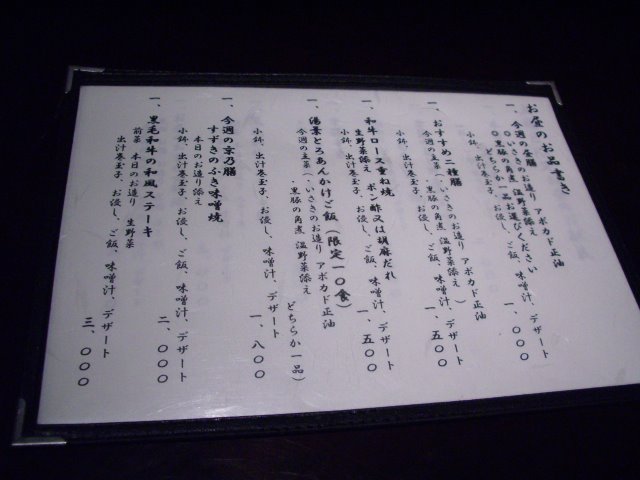 お昼のお品書き
一、今週の昼膳
○いさきのお造り アボカド正油
○黒豚の角煮 温野菜添え
どちらか一品お選びください
小鉢、出汁巻玉子、お浸し、ご飯、味噌汁、デザート
一、〇〇〇
一、おすすめ二種膳
今週の主菜(・いさきのお造り アボカド正油
・黒豚の角煮 温野菜添え)
小鉢、出汁巻玉子、お浸し、ご飯、味噌汁、デザート
一、五〇〇
一、和牛ロース重ね焼
生野菜添え ポン酢又は胡麻だれ
小鉢、出汁巻玉子、お浸し、ご飯、味噌汁、デザート
一、五〇〇
一、湯葉とろあんかけご飯(限定一〇食)
今週の主菜(・いさきのお造り アボカド正油
・黒豚の角煮 温野菜添え
どちらか一品)
小鉢、出汁巻玉子、お浸し、味噌汁、デザート
一、八〇〇
一、今週の京乃膳
すずきのふき味噌焼
本日のお造り添え
小鉢、出汁巻玉子、お浸し、ご飯、味噌汁、デザート
二、〇〇〇
一、黒毛和牛の和風ステーキ
前菜 本日のお造り 生野菜
出汁巻玉子、お浸し、ご飯、味噌汁、デザート
三、〇〇〇